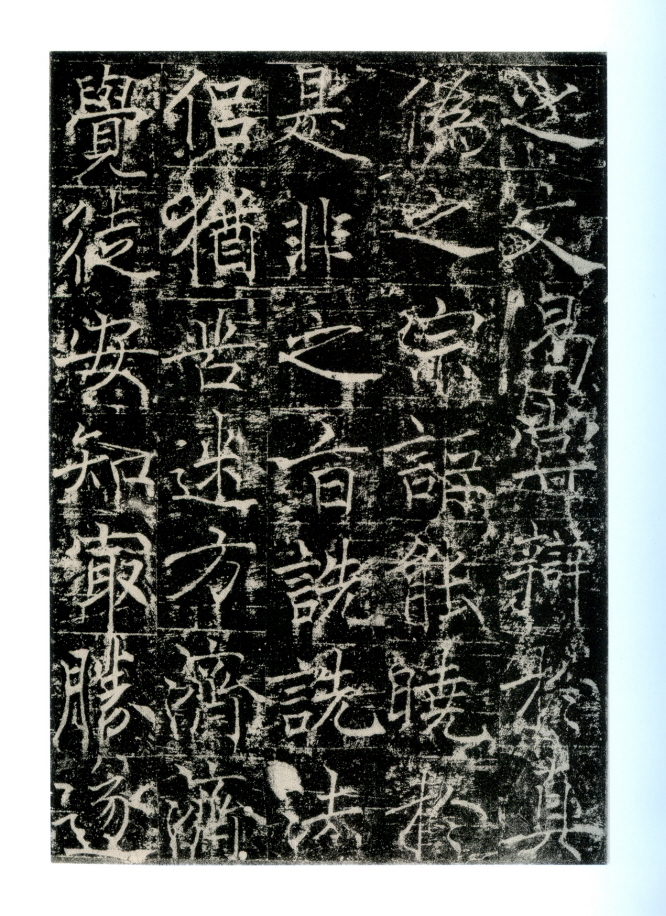 之文曷嘗辯於真
偽之宗詎能曉於
是非之旨詵詵法
侶猶苦迷方濟濟
覺徒安知㝡勝遂